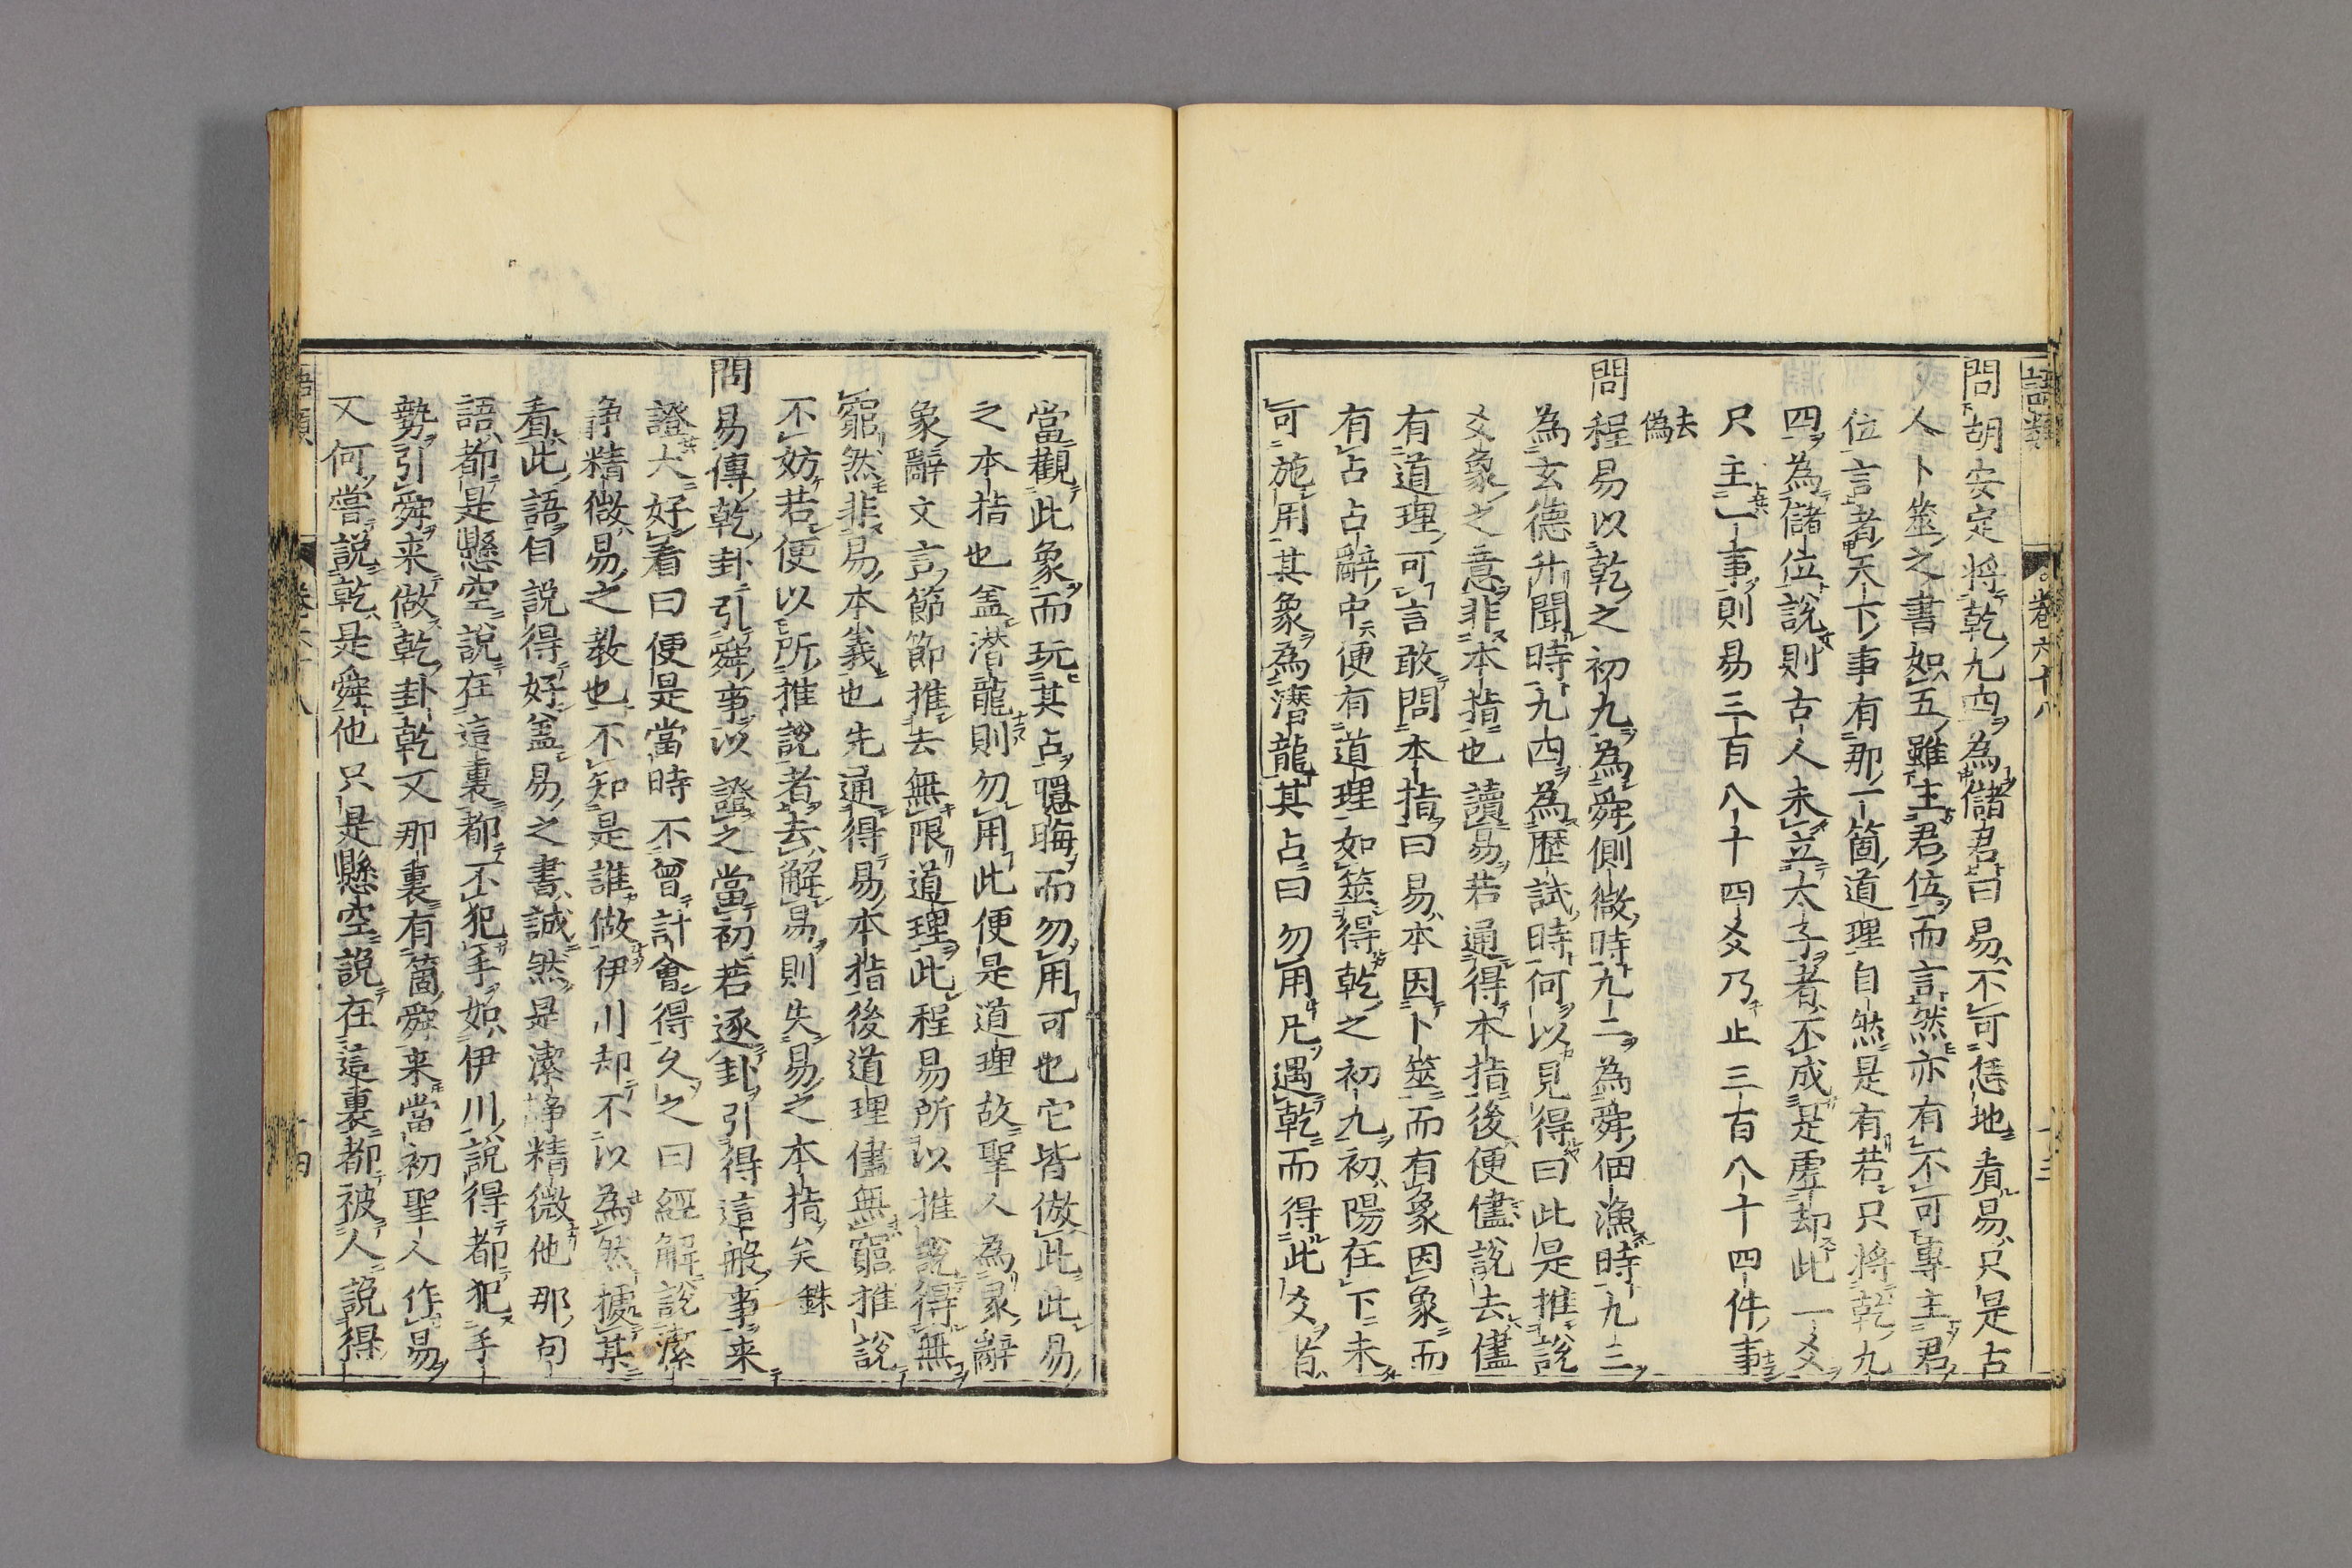 語類 卷六十八 十三
問胡安定將乾九四為儲君曰易不可恁地看易只是古
人卜筮之書如五雖主君位而言然亦有不可專主君
位言者天下事有那一箇道理自然是有若只將乾九
四為儲位說則古人未立太子者不成是虛却此一爻
只主一事則易三百八十四爻乃止三百八十四件事
去偽
問程易以乾之初九為舜側微時九二為舜佃漁時九三
為玄德升聞時九四為歷試時何以見得曰此是推說
爻象之意非本指也讀易若通得本指後便儘說去儘
有道理可言敢問本指曰易本因卜筮而有象因象而
有占占辭中便有道理如筮得乾之初九初陽在下未
可施用其象為潛龍其占曰勿用凡遇乾而得此爻者
當觀此象而玩其占隱晦而勿用可也它皆倣此此易
之本指也盖潜龍則勿用此便是道理故聖人為彖辭
象辭文言節節推去無限道理此程易所以推說得無
窮然非易本義也先通得易本指後道理儘無窮推說
不妨若便以所推說者去解易則失易之本指矣 銖
問易傳乾卦引舜事以證之當初若逐卦引得這般事来
證大好看曰便是當時不曾計會得久之曰經解說潔
静精微易之教也不知是誰做伊川却不以為然據某
看此語自說得好盖易之書誠然是潔静精微他那句
語都是懸空說在這裏都不犯手如伊川說得都犯手
勢引舜来做乾卦乾又那裏有箇舜来當初聖人作易
又何嘗說乾是舜他只是懸空說在這裏都被人說得
語類 卷六十八 十四